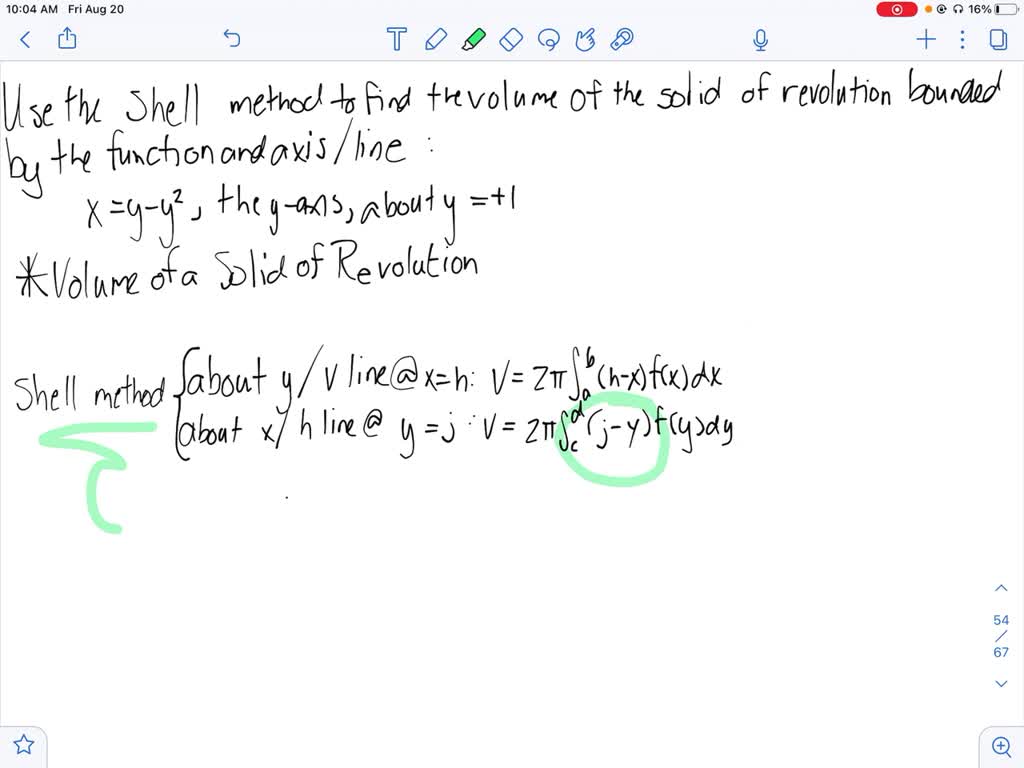 10:04 AM Fri Aug 20
16%
Use the Shell method to find the volume of the solid of revolution bounded
by the function and axis/line :
x = y - y², the y-axis, about y = +1
*Volume of a Solid of Revolution
about y / v line @ x=h: V = 2π∫ₐᵇ (h-x)f(x)dx
Shell method {
about x/ h line @ y = j : V = 2π∫꜀ᵈ (j-y)f(y)dy
54
/
67